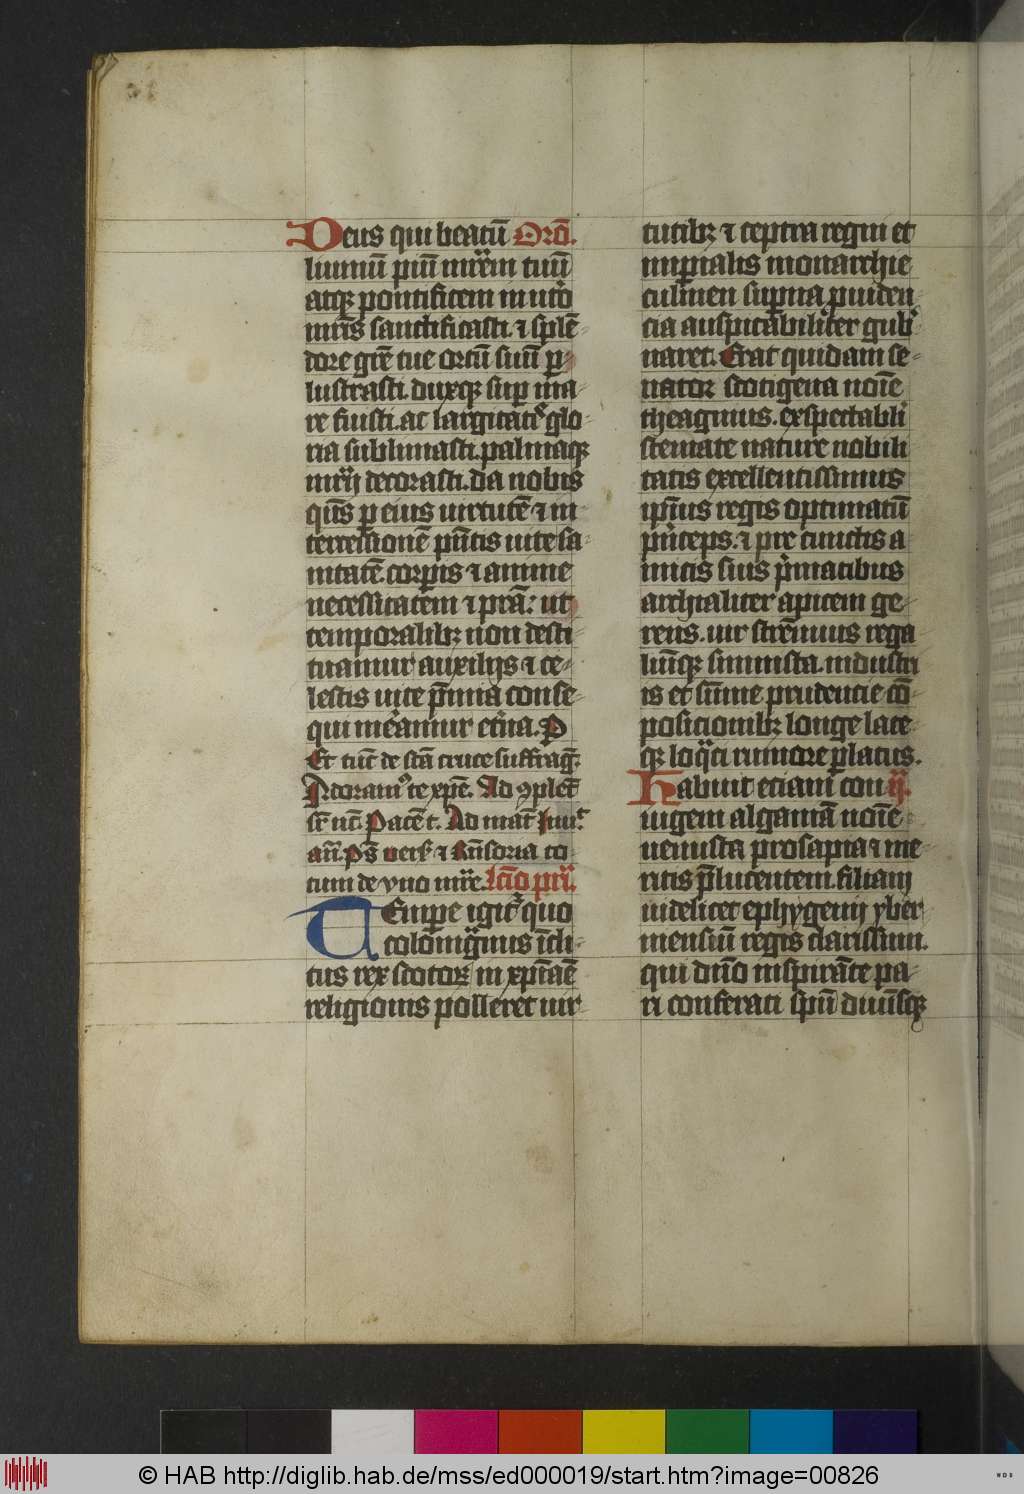 Deus qui beatū Orō.
liuinū piū mr̄em tuū
atqꝫ pontificem in utō
mr̄is sanctificasti. ⁊ splē
dore grē tue ortū suū ꝑ
lustrasti. duxqꝫ suꝑ ma
re fuisti. ac largitatꝭ glo
ria sublimasti. palmaqꝫ
mr̄ij decorasti. da nobis
qūs ꝑ eius uirtutē ⁊ in
tercessionē pn̄tis uite sa
nitatē. corꝑis ⁊ anime
necessitatem ⁊ prā: ut
temporalibꝫ non desti
tuamur auxilijs ⁊ ce
lestis uite p̄mia conse
qui mereamur etna. P
Et tūc de sctā cruce suffrag.
Adoramꝰ te xp̄e. Ad ꝯpletō
Pacē t. Ad mat Inui
an. ps̄ uers ⁊ Rn̄soria co
tum de vno mr̄e. lcīo prī.
Tempe igitꝭ quo
colomgnus īcli
tus rex scotoꝝ in xp̄iaē
religionis polleret uir
tutibꝫ ⁊ ceptra regni et
imꝑialis monarchie
culmen suꝑna ꝓuiden
cia auspicabiliter gub
naret. Erat quidam se
nator scotigena noīe
theagnius. exspectabli
stemate nature nobili
tatis excellentissimus
ipīus regis optimatū
pͥnceps. ⁊ pre cunctis a
micis suis pͥmatibus
archialiter apicem ge
rens. uir strenuus rega
liūqꝫ simmista. industri
is et sūme prudencie cō
posicionibꝫ longe late
qꝫ loqͣci rumore ꝑlatus.
Habuit eciam con ij.
iugem algamā noīe
uenusta prosapia ⁊ me
ritis p̄lucentem. filiam
uidelicet ephygenij yber
niensiū regis clarissimi.
qui dn̄o inspirāte pa
ri conferati spū diuīsqꝫ
© HAB http://diglib.hab.de/mss/ed000019/start.htm?image=00826